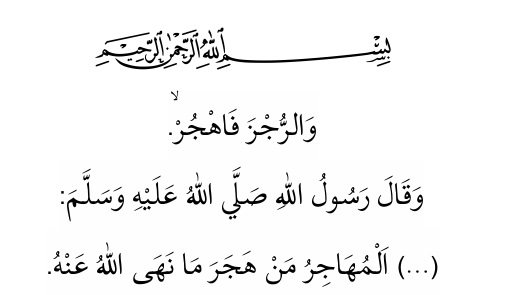 بِسْمِ اللهِ الرَّحْمٰنِ الرَّحِيْمِ
وَالرُّجْزَ فَاهْجُرْ.ۙ
وَقَالَ رَسُولُ اللهِ صَلَّي اللهُ عَلَيْهِ وَسَلَّمَ:
(...) اَلْمُهَاجِرُ مَنْ هَجَرَ مَا نَهَى اللهُ عَنْهُ.